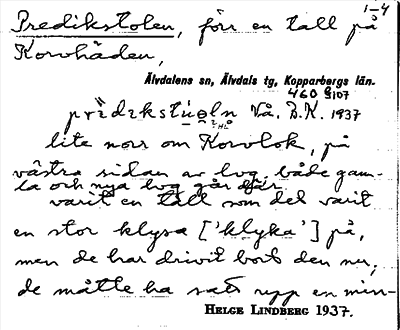 1-4
Predikstolen, förr en tall på
Korvhåden,
Älvdalens sn, Älvdals tg, Kopparbergs län.
460 9107
Vå. B.K. 1937
lite norr om Korvlok, på
västra sidan av lvg, både gam-
la och nya lvg går där.
varit en tall som det varit
en stor klysa ['klyka'] på,
men de har drivit bort den nu,
de måtte ha satt upp en min-
HELGE LINDBERG 1937.